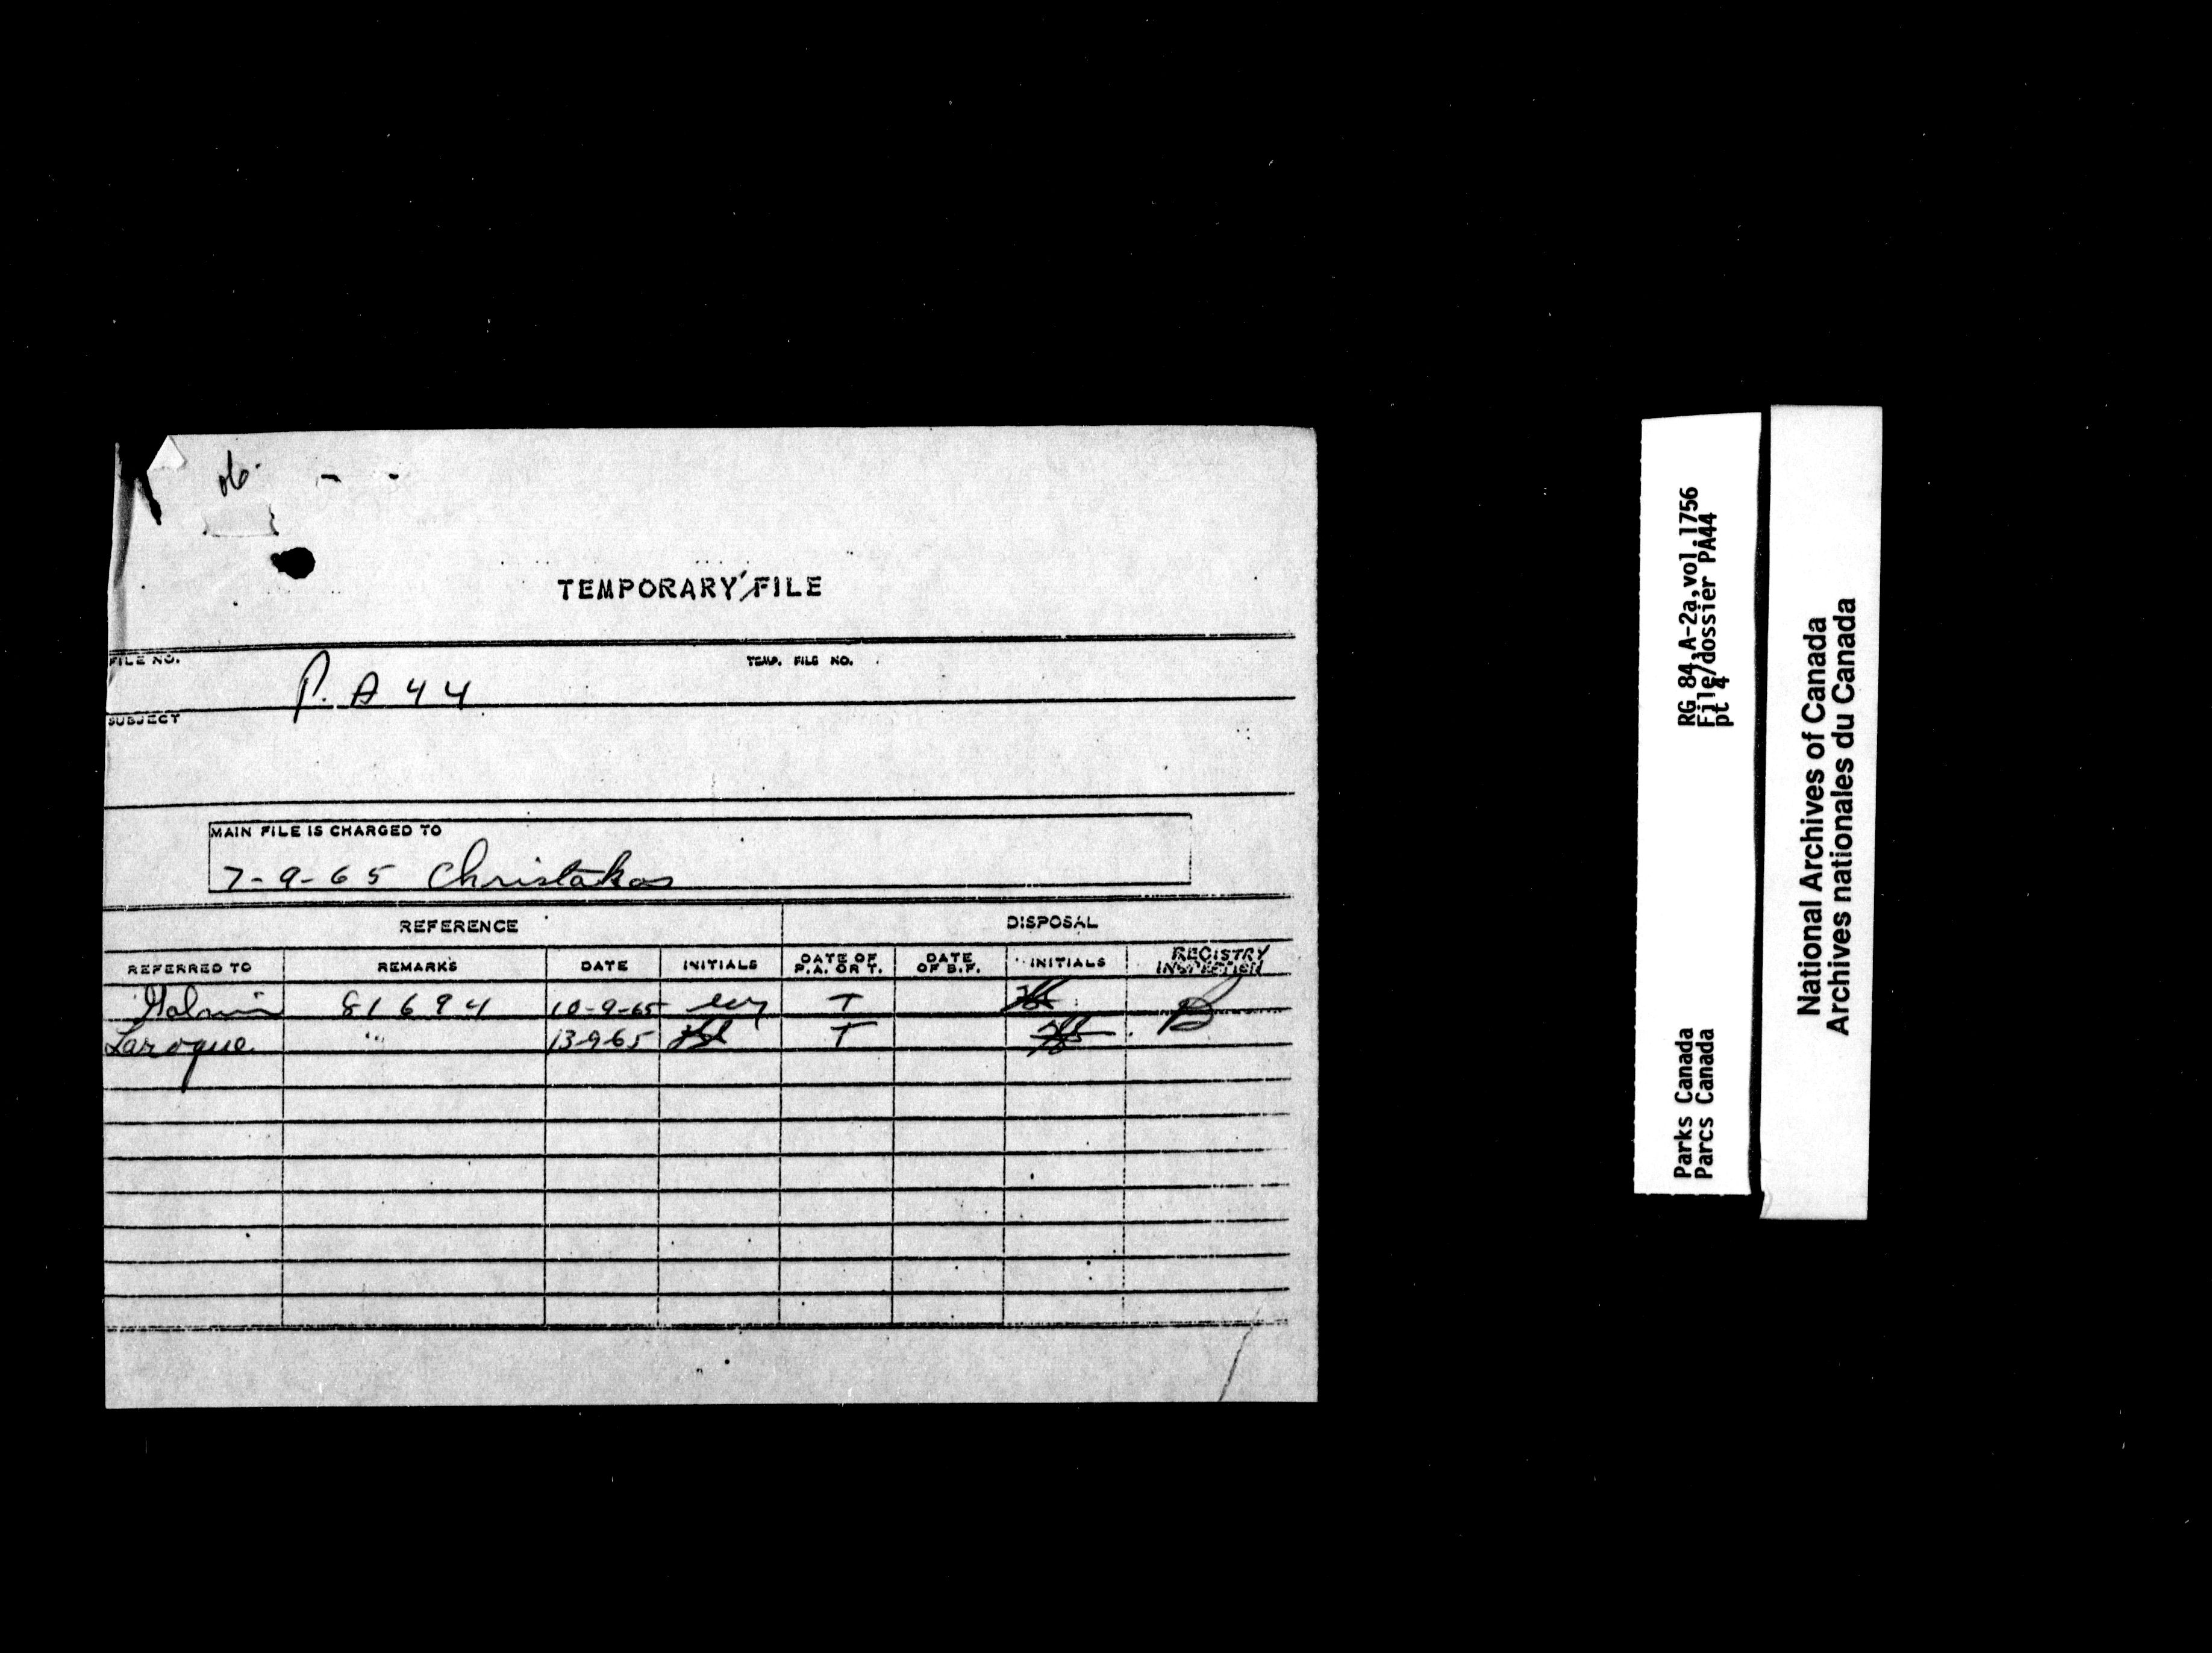 TEMPORARY FILE
FILE NO. P. A 44 TEMP. FILE NO.
SUBJECT
MAIN FILE IS CHARGED TO
7-9-65 Christakos
REFERENCE DISPOSAL
REFERRED TO REMARKS DATE INITIALS DATE OF P.A. OR T. DATE OF B.F. INITIALS REGISTRY INSPECTION
81694 10-9-65 T
Laroque " 13-9-65 T
RG 84, A-2a, vol. 1756
File/dossier PA44
pt 4
Parks Canada
Parcs Canada
National Archives of Canada
Archives nationales du Canada